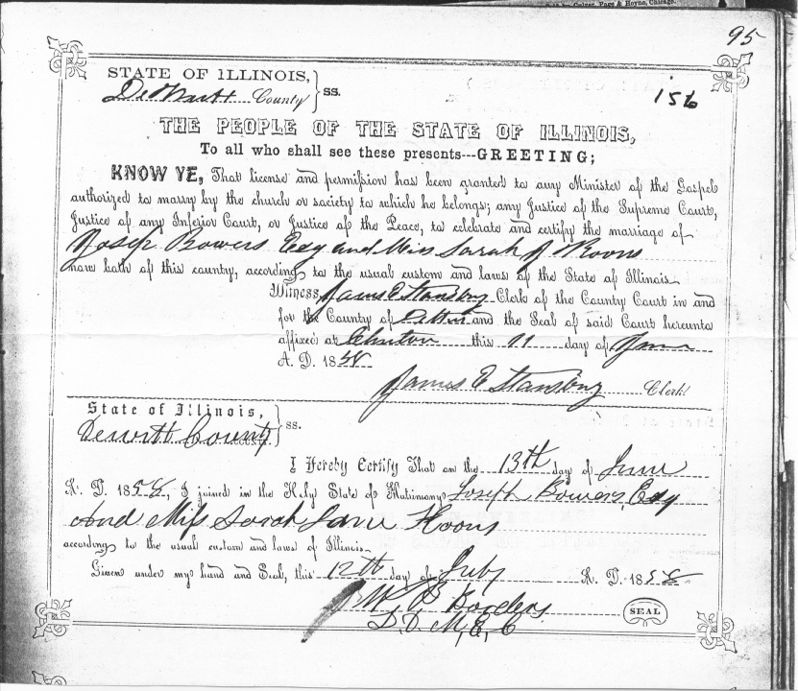 & Hoyne, Chicago.
95
STATE OF ILLINOIS,
DeWitt County } ss.
156
THE PEOPLE OF THE STATE OF ILLINOIS,
To all who shall see these presents---GREETING;
KNOW YE, That license and permission has been granted to any Minister of the Gospel
authorized to marry by the church or society to which he belongs; any Justice of the Supreme Court,
Justice of any Inferior Court, or Justice of the Peace, to celebrate and certify the marriage of
Joseph Bowers Esq and Miss Sarah J
now both of this county, according to the usual custom and laws of the State of Illinois.
Witness, James Stansbury Clerk of the County Court in and
for the County of DeWitt and the Seal of said Court hereunto
affixed at Clinton this 11 day of June
A. D. 1858
James Stansbury Clerk
State of Illinois,
Dewitt County } ss.
COUNTY.
I Hereby Certify That on the 13th day of June
A. D. 1858, I joined in the Holy State of Matrimony Joseph Bowers, Esq
And Miss Sarah Jane
according to the usual custom and laws of Illinois.
Given under my hand and Seal, this 12th day of July A. D. 1858
Borders
M, E, C
SEAL